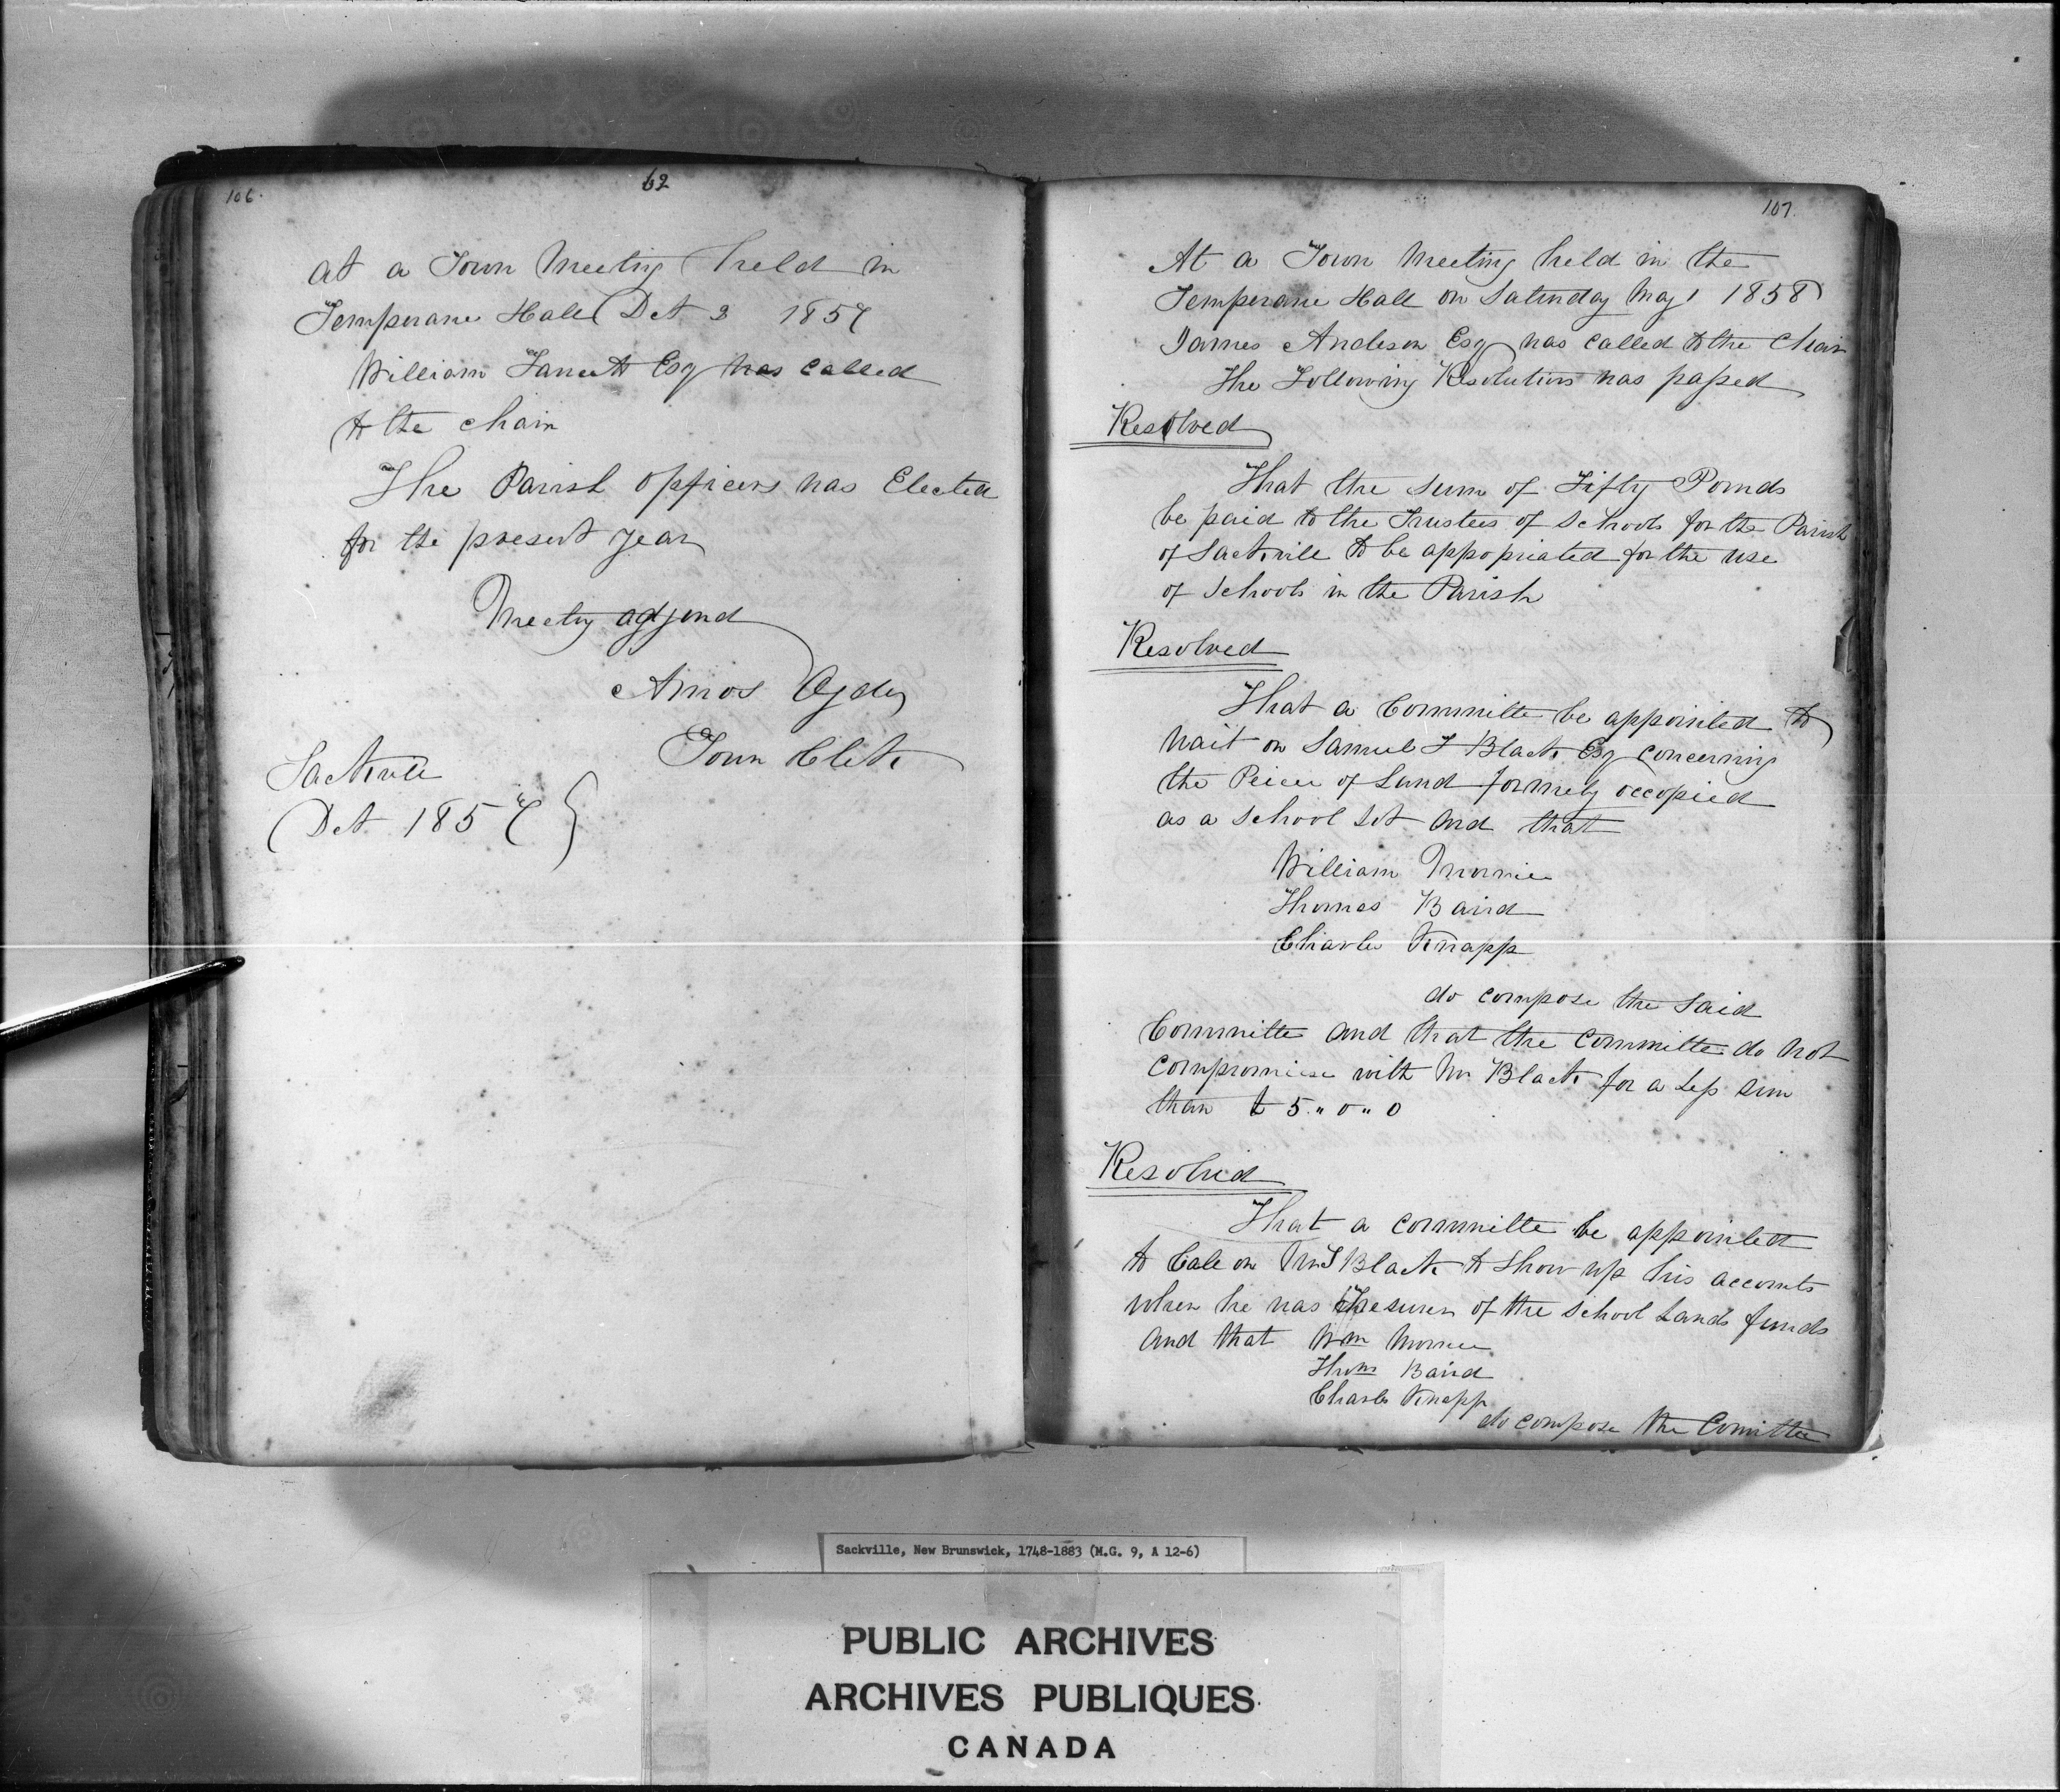 106.
62
at a Town Meeting held in
Temperane Hall Oct 3 1857
William Esq was called
to the chair
The Parish officers was Elected
for the present year
Meeting adjond
Amos Ogden
Town Clerk
Sackville
Oct 1857
107.
At a Town Meeting held in the
Temperane Hall on Saturday May 1 1858
James Anderson Esq was called to the Chair
The Following Resolutions was passed
Resolved
That the Sum of Fifty Pounds
be paid to the Trustees of Schools for the Parish
of Sackville to be appopriated for the use
of Schools in the Parish
Resolved
That a Committe be appointed to
wait on Samuel F Black Esq concerning
the Peice of Land formely occopied
as a School Lot and that
William Morrice
Thomas Baird
Charles Knapp
do compose the Said
Committe and that the Committe do not
Compromise with Mr Black for a Less sum
than £ 5 " 0 " 0
Resolved
That a committe be appointed
to Cale on Black to Show up his accounts
when he was Thesurer of the School Lands funds
and that Wm Morrice
Thos Baird
Charles Knapp
do compose the Comittee
Sackville, New Brunswick, 1748-1883 (M.G. 9, A 12-6)
PUBLIC ARCHIVES
ARCHIVES PUBLIQUES
CANADA